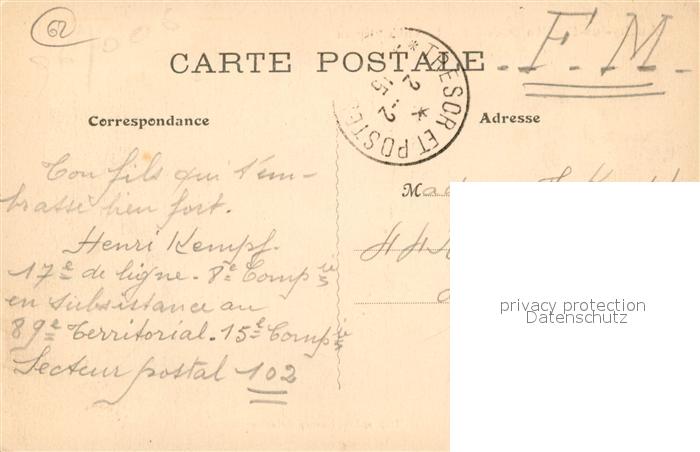 62
CARTE POSTALE
F.M.
TRESOR ET POSTES
2
15-2
Correspondance
Adresse
Ton fils qui t'em-
brasse bien fort.
Henri Kempf.
17e de ligne - 8e Compie
en subsistance au
89e Territorial - 15e Compie
Secteur postal 102
M
privacy protection
Datenschutz